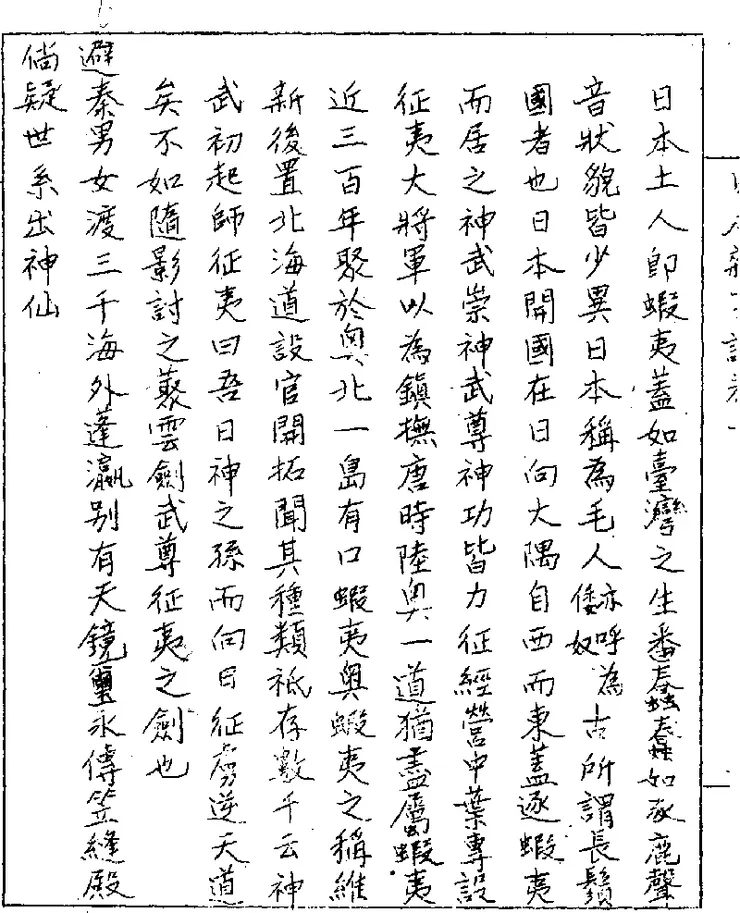 日本土人即蝦夷蓋如臺灣之生番蠢蠢如豕鹿聲
音狀貌皆少異日本稱為毛人亦呼為倭奴古所謂長鬚
國者也日本開國在日向大隅自西而東蓋逐蝦夷
而居之神武崇神武尊神功皆力征經營中葉專設
征夷大將軍以為鎮撫唐時陸奧一道猶盡屬蝦夷
近三百年聚於奧北一島有口蝦夷奧蝦夷之稱維
新後置北海道設官開拓聞其種類祇存數千云神
武初起師征夷曰吾日神之孫而向日征虜逆天道
矣不如隨影討之藂雲劍武尊征夷之劍也
避秦男女渡三千海外蓬瀛別有天鏡璽永傳笠縫殿
倘疑世系出神仙